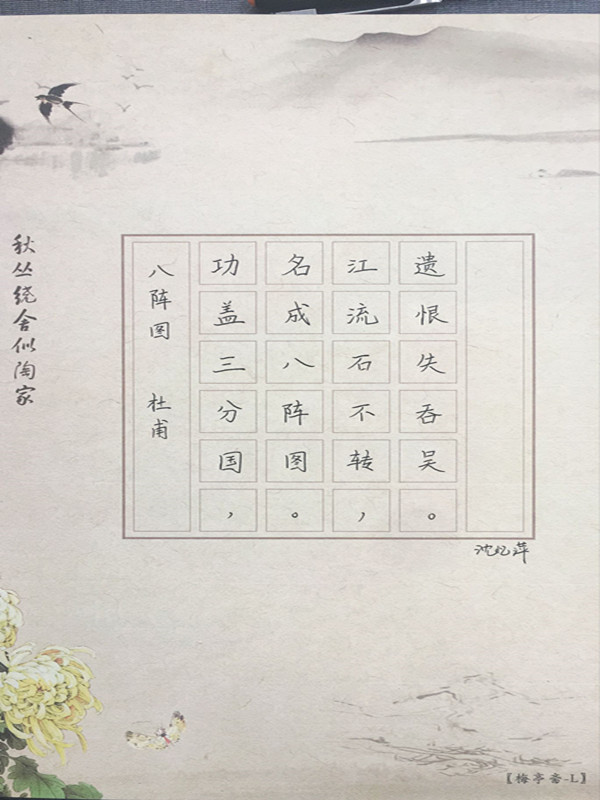 秋丛绕舍似陶家
八阵图 杜甫
功盖三分国，
名成八阵图。
江流石不转，
遗恨失吞吴。
【梅亭斋-L】